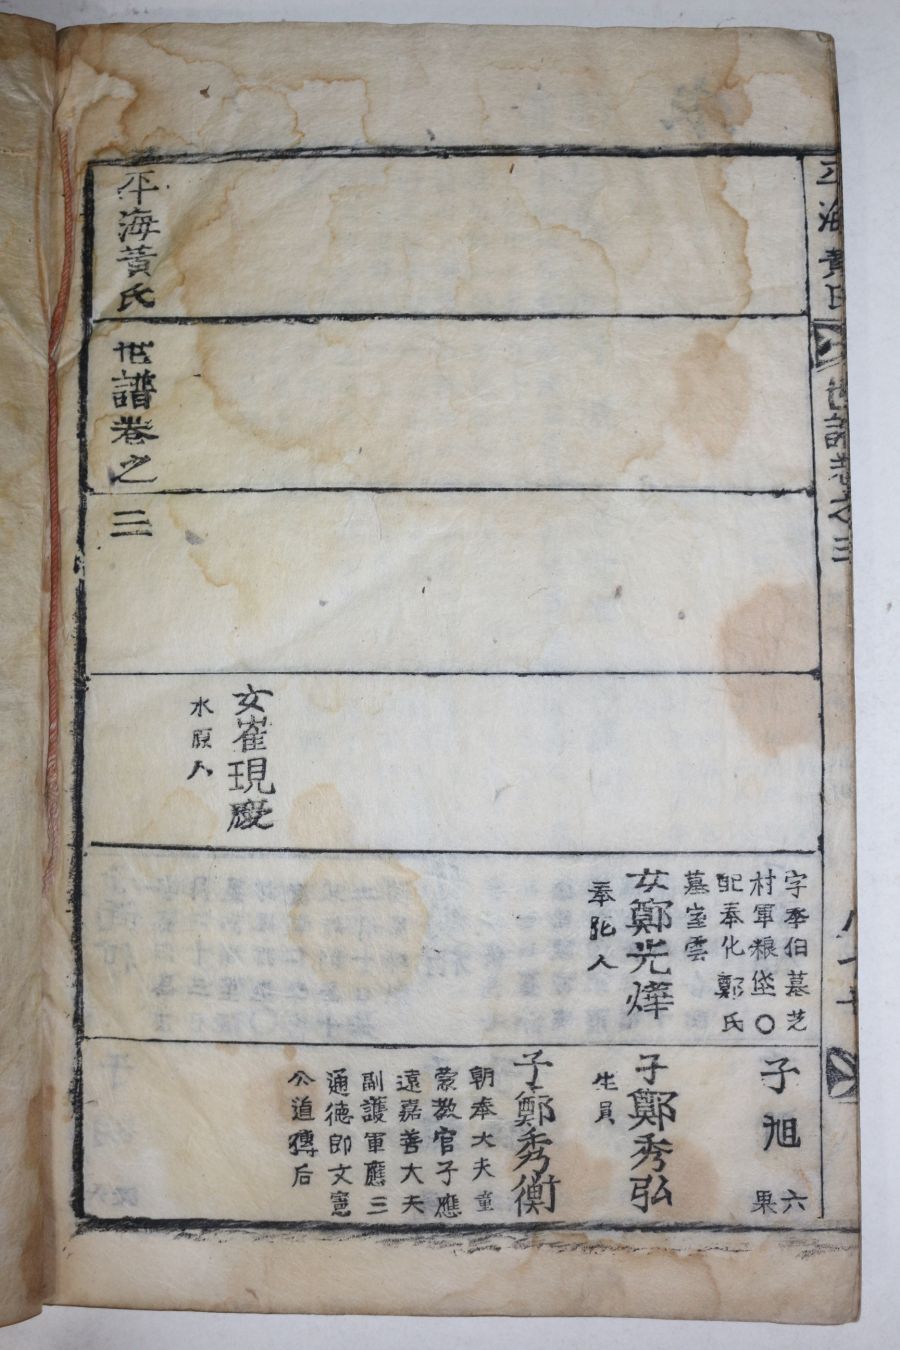 平海黃氏
世譜卷之三
字季伯墓芝
村軍粮垈〇
配奉化鄭氏
墓
雲
女鄭光燁
奉化人
子旭
六
果
子鄭秀弘
生員
子鄭秀衡
朝奉大夫童
蒙教官子應
遠嘉善大夫
副護軍應三
通德郎文憲
公道傳后
女崔現慶
水原人
平海黃氏
世譜卷之三